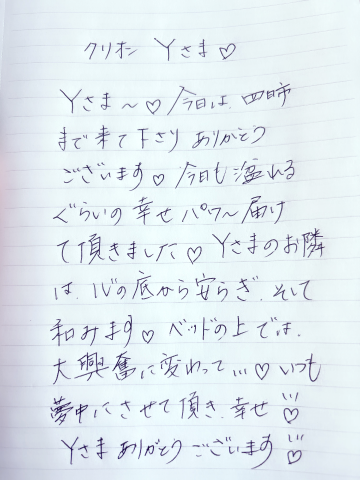 クリオン Yさま♡
Yさま〜♡今日は、四日市
まで来て下さり ありがとう
ございます♡今日も溢れる
ぐらいの幸せパワ〜届け
て頂きました♡Yさまのお隣
は、心の底から安らぎ、そして
和みます♡ベッドの上では、
大興奮に変わって...♡いつも
夢中にさせて頂き、幸せ♡
Yさまありがとうございます♡